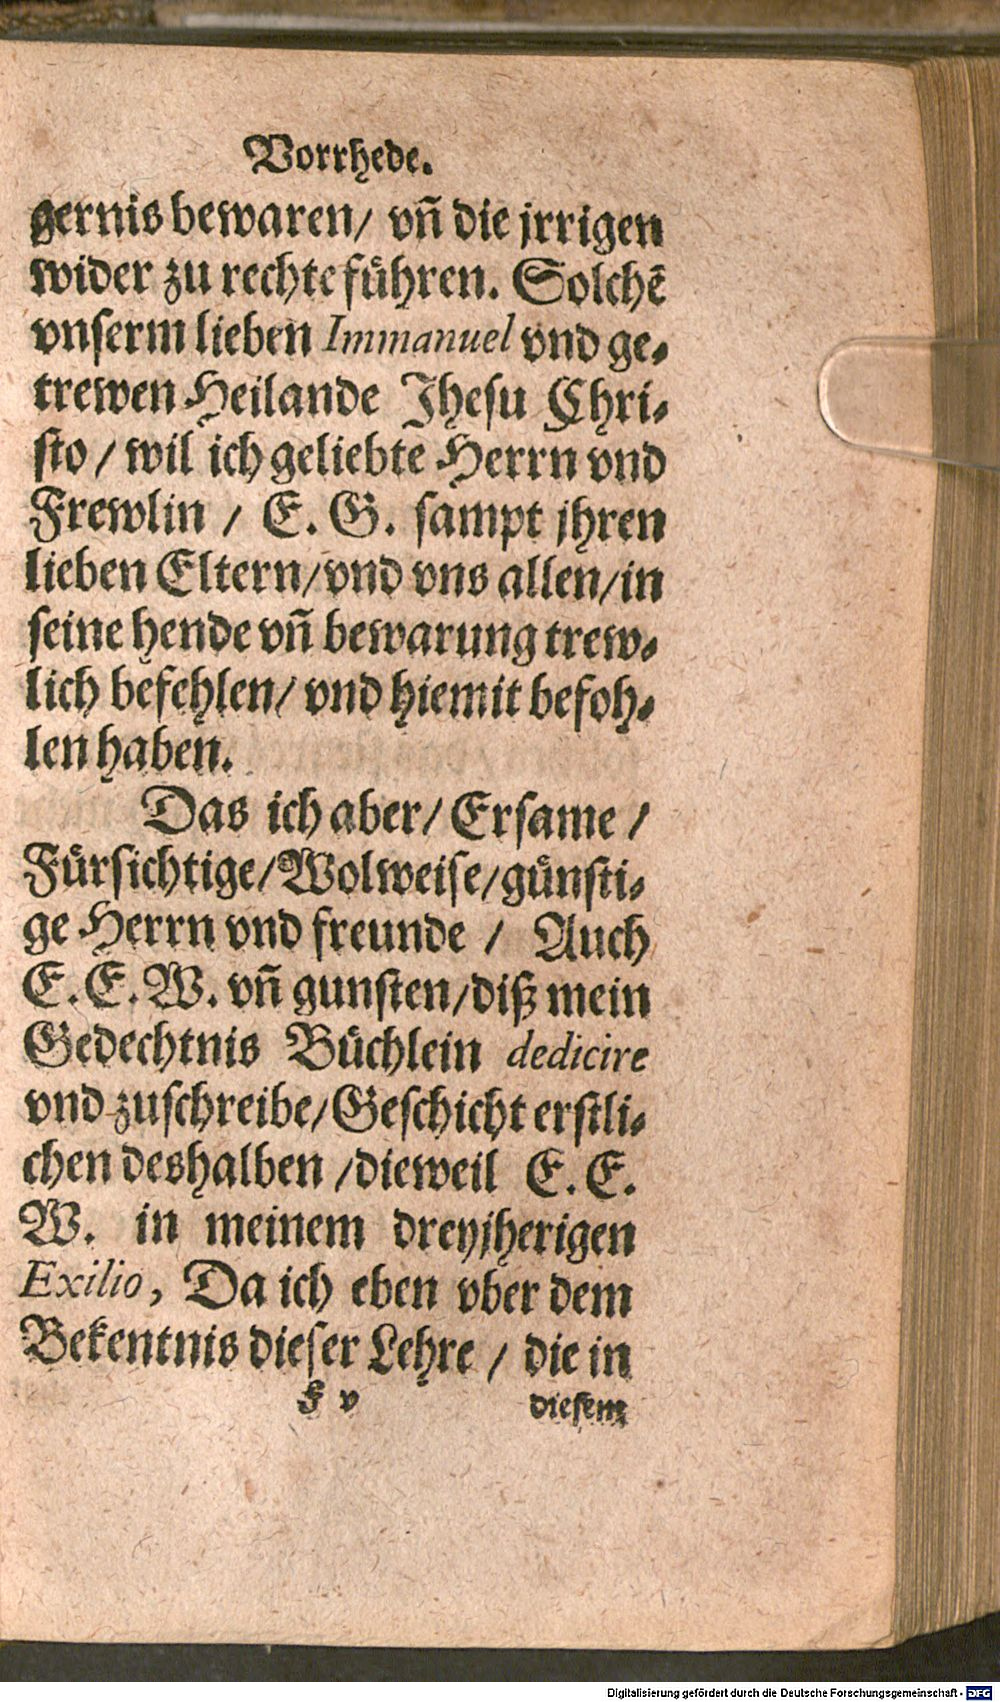 Vorrhede.
gernis bewaren/ vñ die jrrigen
wider zu rechte führen. Solchē
vnserm lieben Immanuel vnd ge-
trewen Heilande Jhesu Chri-
sto / wil ich geliebte Herrn vnd
Frewlin / E. G. sampt jhren
lieben Eltern/vnd vns allen/in
seine hende vñ bewarung trew-
lich befehlen/ vnd hiemit befoh-
len haben.
Das ich aber/ Ersame /
Fürsichtige/Wolweise/günsti-
ge Herrn vnd freunde / Auch
E. E. W. vñ gunsten/diß mein
Gedechtnis Büchlein dedicire
vnd zuschreibe/Geschicht erstli-
chen deshalben /dieweil E. E.
W. in meinem dreyjherigen
Exilio, Da ich eben vber dem
Bekentnis dieser Lehre / die in
v diesem
Digitalisierung gefördert durch die Deutsche Forschungsgemeinschaft - DFG